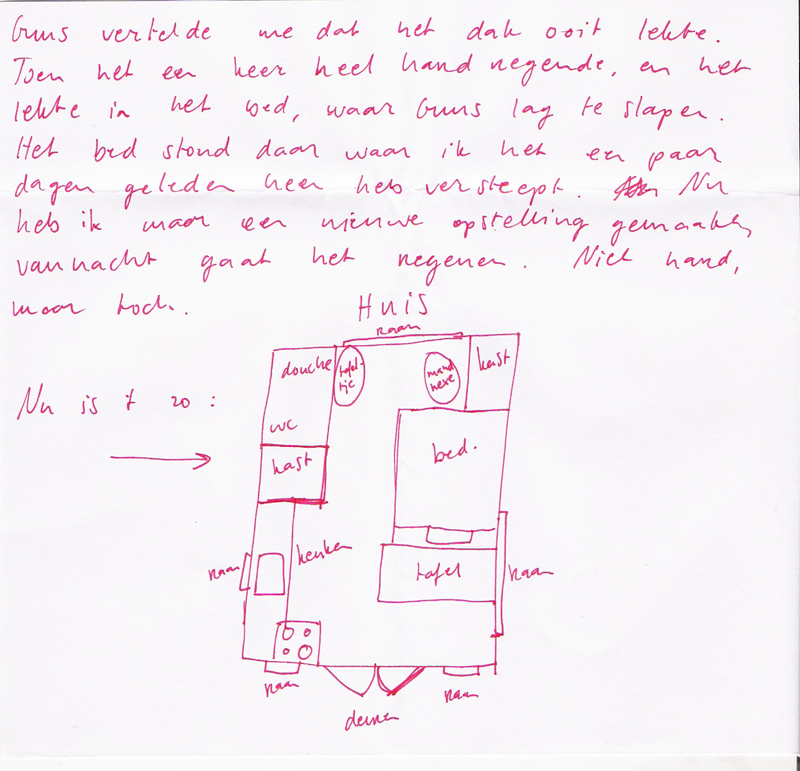 Guus vertelde me dat het dak ooit lekte.
Toen het een keer heel hard regende, en het
lekte in het bed, waar Guus lag te slapen.
Het bed stond daar waar ik het een paar
dagen geleden heen heb versleept. Nu
heb ik maar een nieuwe opstelling gemaakt,
vannacht gaat het regenen. Niet hard,
maar toch.
HUIS
raam
douche
tafel-
tje
mand
hexe
kast
Nu is 't zo:
wc
kast
bed.
keuken
raam
tafel
raam
raam
raam
deuren